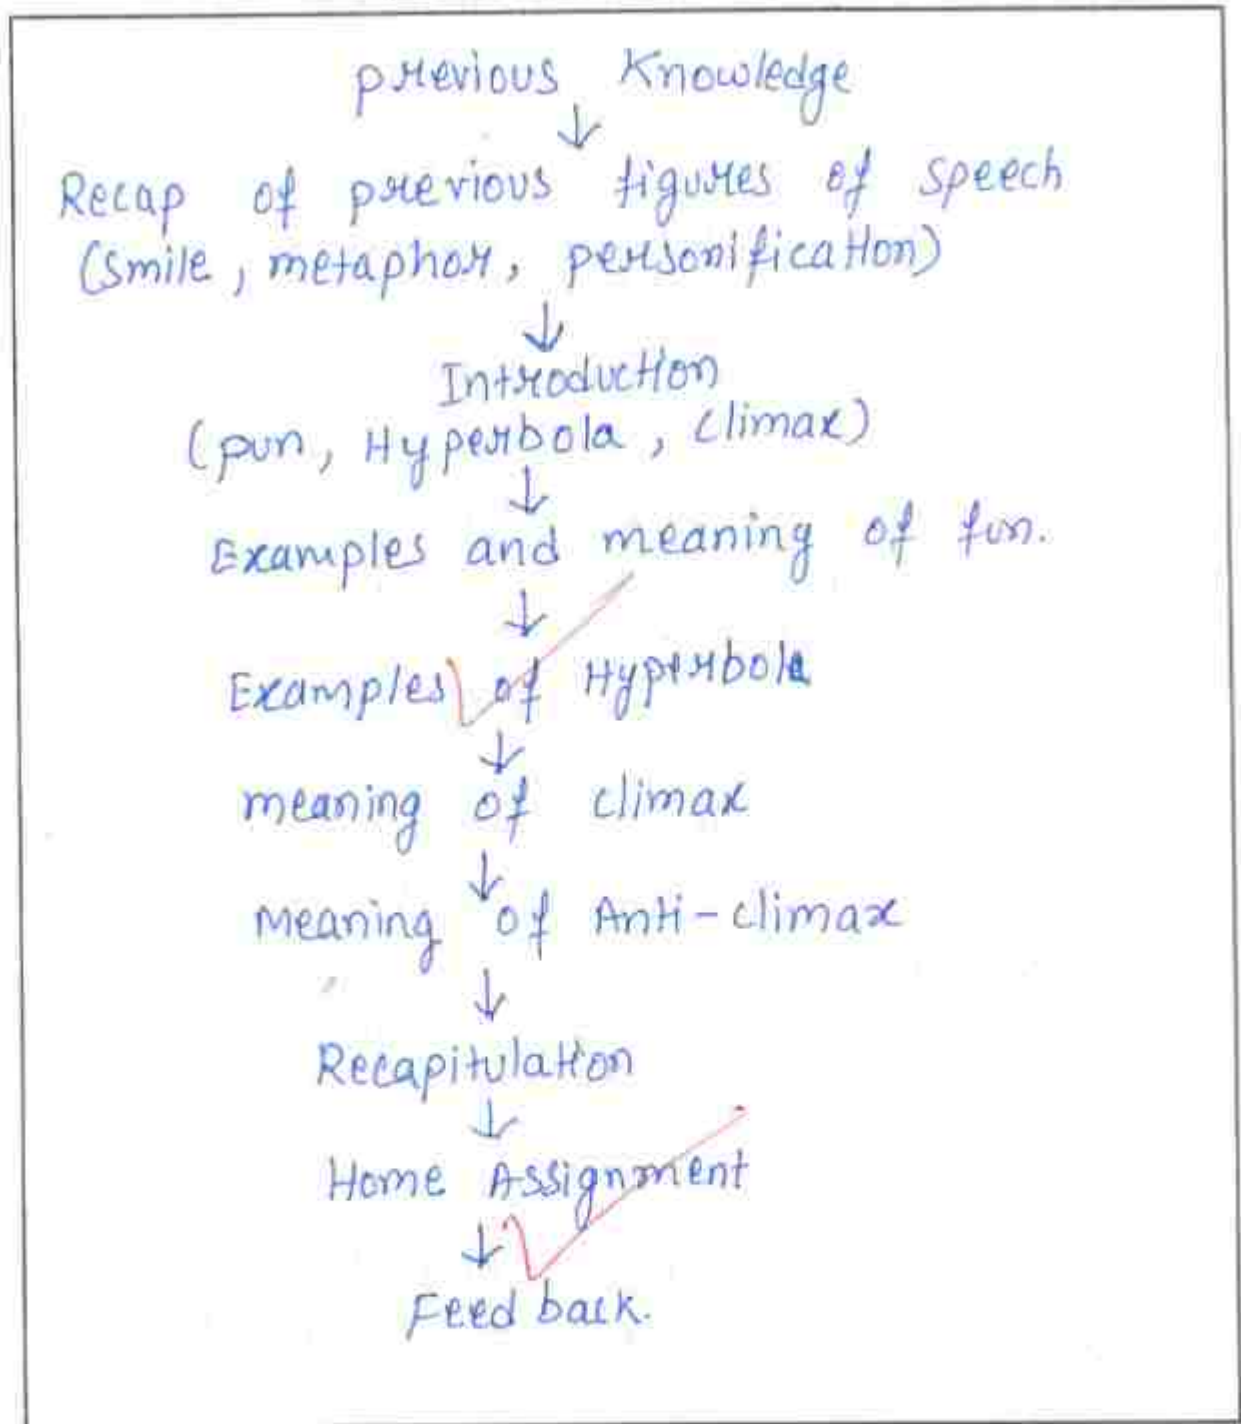 previous Knowledge
↓
Recap of previous figures of speech
(Smile, metaphor, personification)
↓
Introduction
(pun, Hyperbola, Climax)
↓
Examples and meaning of fun.
↓
Examples of Hyperbola
↓
meaning of climax
↓
Meaning of Anti-climax
↓
Recapitulation
↓
Home Assignment
↓
Feed back.